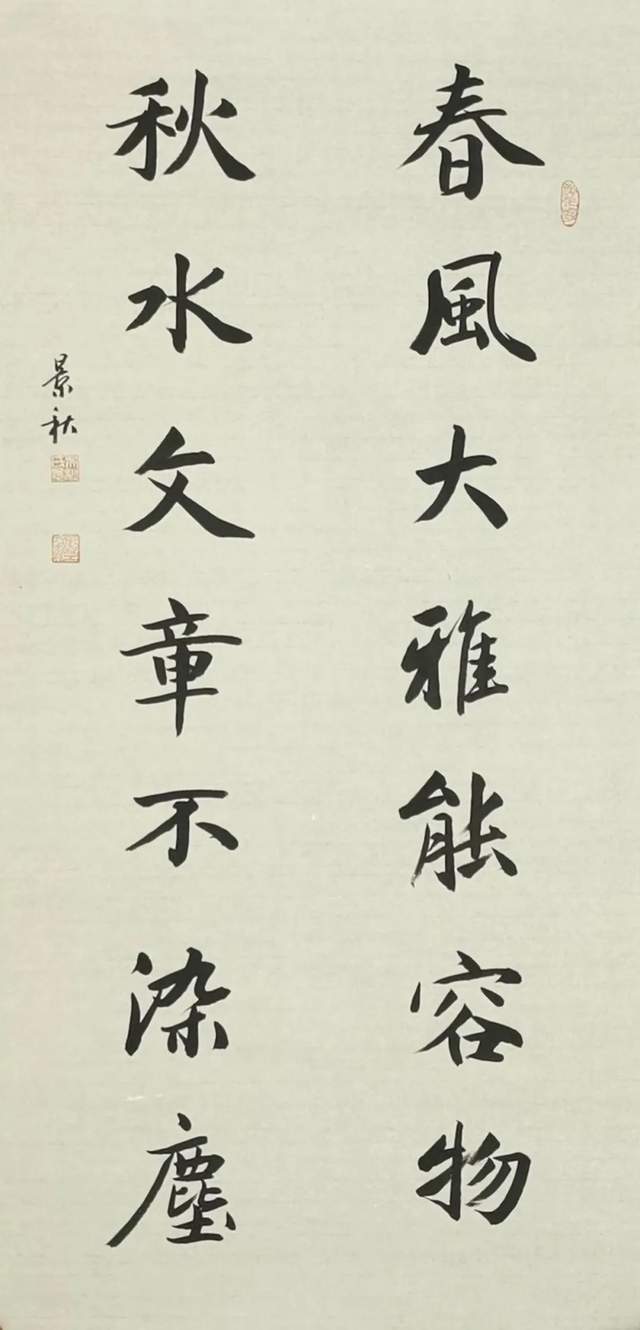 春風大雅能容物
秋水文章不染塵
景秋